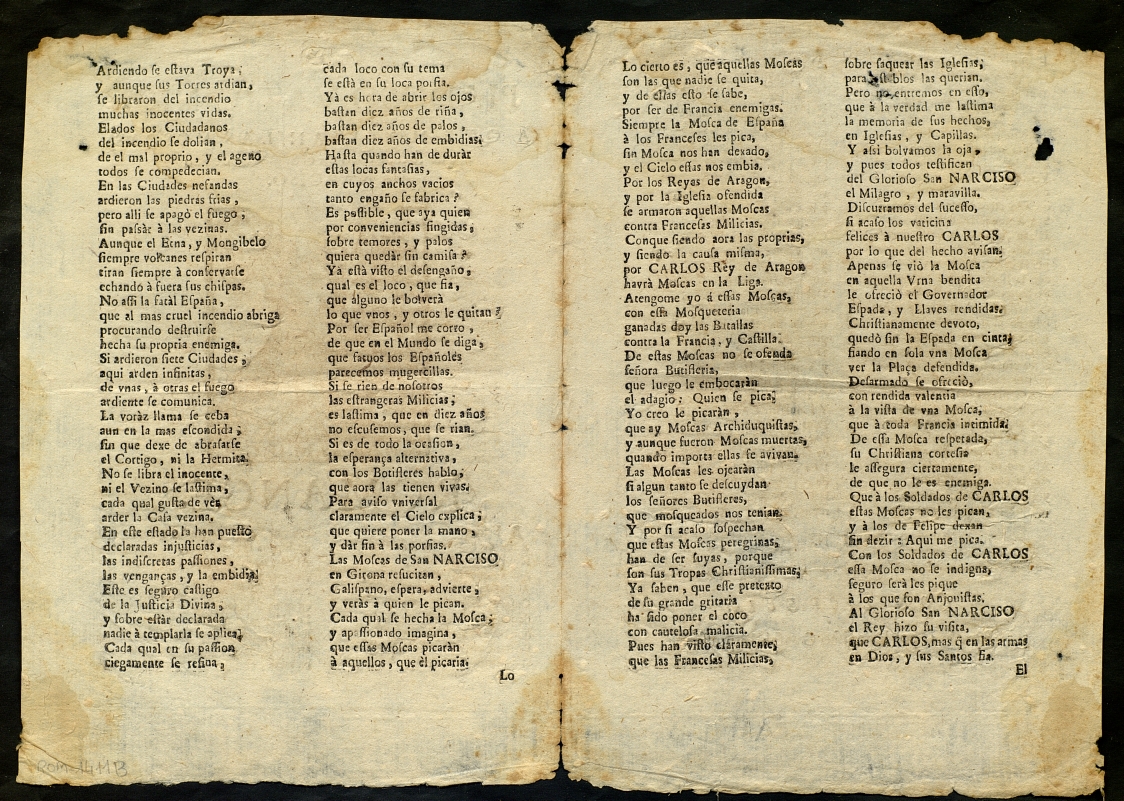 Ardiendo se estava Troya;
y aunque sus Torres ardian,
se libraron del incendio
muchas inocentes vidas.
Elados los Ciudadanos
del incendio se dolian,
de el mal proprio, y el ageno
todos se compedecian.
En las Ciudades nefandas
ardieron las piedras frias,
pero alli se apagò el fuego;
sin passàr à las vezinas.
Aunque el Etna, y Mongibelo
siempre volcanes respiran
tiran siempre à conservarse
echando à fuera sus chispas.
No assi la fatàl España,
que al mas cruel incendio abriga
procurando destruirse
hecha su propria enemiga.
Si ardieron siete Ciudades,
aqui arden infinitas,
de vnas, à otras el fuego
ardiente se comunica.
La voràz llama se ceba
aun en la mas escondida;
sin que dexe de abrasarse
el Cortigo, ni la Hermita.
No se libra el inocente,
ni el Vezino se lastima,
cada qual gusta de vèr
arder la Casa vezina.
En este estado la han puesto
declaradas injusticias,
las indiscretas passiones,
las venganças, y la embidia;
Este es seguro castigo
de la Justicia Divina,
y sobre estàr declarada
nadie à templarla se aplica;
Cada qual en su passion
ciegamente se refina;
cada loco con su tema
se està en su loca porfia.
Yà es hora de abrir los ojos
bastan diez años de riña,
bastan diez años de palos,
bastan diez años de embidias.
Hasta quando han de duràr
estas locas fantasias,
en cuyos anchos vacios
tanto engaño se fabrica?
Es possible, que aya quien
por conveniencias fingidas;
sobre temores, y palos
quiera quedàr sin camisa?
Yà està visto el desengaño,
qual es el loco, que fia,
que alguno le bolverà
lo que vnos, y otros le quitan?
Por ser Español me corro,
de que en el Mundo se diga,
que fatuos los Españoles
parecemos mugercillas.
Si se rien de nosotros
las estrangeras Milicias;
es lastima, que en diez años
no escusemos, que se rian.
Si es de todo la ocasion,
la esperança alternativa,
con los Botifleres hablo,
que aora las tienen vivas.
Para aviso vniversal
claramente el Cielo explica;
que quiere poner la mano,
y dàr fin à las porfias.
Las Moscas de San NARCISO
en Girona resucitan,
Galispano, espera, advierte,
y veràs à quien le pican.
Cada qual se hecha la Mosca;
y apassionado imagina,
que essas Moscas picaràn
à aquellos, que èl picaria.
Lo
Lo cierto es, que aquellas Moscas
son las que nadie se quita,
y de ellas esto se sabe,
por ser de Francia enemigas.
Siempre la Mosca de España
à los Franceses les pica,
sin Mosca nos han dexado,
y el Cielo essas nos embia.
Por los Reyes de Aragon,
y por la Iglesia ofendida
se armaron aquellas Moscas
contra Francesas Milicias.
Conque siendo aora las proprias,
y siendo la causa misma,
por CARLOS Rey de Aragon
havrà Moscas en la Liga.
Atengome yo à essas Moscas,
con essa Mosqueteria
ganadas doy las Batallas
contra la Francia, y Castilla.
De estas Moscas no se ofenda
señora Butifleria,
que luego le embocaràn
el adagio: Quien se pica;
Yo creo le picaràn,
que ay Moscas Archiduquistas,
y aunque fueron Moscas muertas,
quando importa ellas se avivan.
Las Moscas les ojearàn
si algun tanto se descuydan
los señores Butifleres,
que mosqueados nos tenian.
Y por si acaso sospechan
que estas Moscas peregrinas,
han de ser suyas, porque
son sus Tropas Christianissimas;
Ya saben, que esse pretexto
de su grande gritaria
ha sido poner el coco
con cautelosa malicia.
Pues han visto claramente,
que las Francesas Milicias,
sobre saquear las Iglesias,
para establos las querian.
Pero no entremos en esso,
que à la verdad me lastima
la memoria de sus hechos,
en Iglesias, y Capillas.
Y assi bolvamos la oja,
y pues todos testifican
del Glorioso San NARCISO
el Milagro, y maravilla.
Discurramos del sucesso,
si acaso los vaticina
felices à nuestro CARLOS
por lo que del hecho avisan;
Apenas se viò la Mosca
en aquella Vrna bendita
le ofreciò el Governador
Espada, y Llaves rendidas.
Christianamente devoto,
quedò sin la Espada en cinta;
fiando en sola vna Mosca
ver la Plaça defendida.
Desarmado se ofreciò,
con rendida valentia
à la vista de vna Mosca,
que à toda Francia intimida;
De essa Mosca respetada,
su Christiana cortesia
le assegura ciertamente,
de que no le es enemiga.
Que à los Soldados de CARLOS
estas Moscas no les pican,
y à los de Felipe dexan
sin dezir: Aqui me pica.
Con los Soldados de CARLOS
essa Mosca no se indigna,
seguro serà les pique
à los que son Anjovistas.
Al Glorioso San NARCISO
el Rey hizo su visita,
que CARLOS, mas q̃ en las armas
en Dios, y sus Santos fia.
El